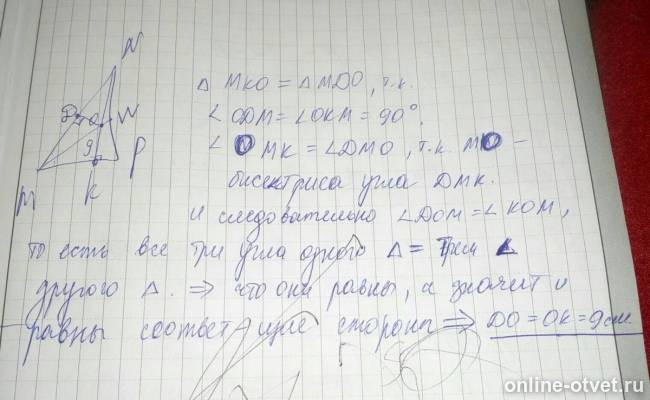 N
D
O
W
9
P
M
K
Δ МКО = Δ МDO, т.к.
∠ ODM = ∠OKM = 90°.
∠ OMK = ∠DMO, т.к. MO –
бисектриса угла DMK.
и следовательно ∠DOM = ∠KOM,
то есть все три угла одного Δ = трем ∠
другого Δ. ⇒ что они равны, а значит и
равны соответ щие стороны ⇒ DO = OK = 9см
online-otvet.ru